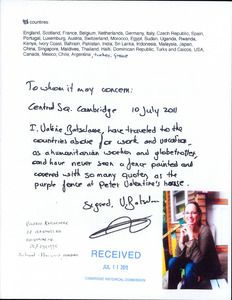 countries
England, Scotland, France, Belgium, Netherlands, Germany, Italy, Czech Republic, Spain,
Portugal, Luxemburg, Austria, Switzerland, Morocco, Egypt, Sudan, Uganda, Rwanda,
Kenya, Ivory Coast, Bahrain, Pakistan, India, Sri Lanka, Indonesia, Malaysia, Japan,
China, Singapore, Maldives, Thailand, Haiti, Dominican Republic, Turks and Caicos, USA,
Canada, Mexico, Chile, Argentina, Turkey, Greece
To whom it may concern:
Central Sq. Cambridge 10 July 2011
I, Valérie have traveled to the
countries above for work and vacation,
as a humanitarian worker and globetrotter,
and have never seen a fence painted and
covered with so many quotes, as the
purple fence at Peter Valentine's house.
Signed,
RECEIVED
JUL 11 2011
CAMBRIDGE HISTORICAL COMMISSION